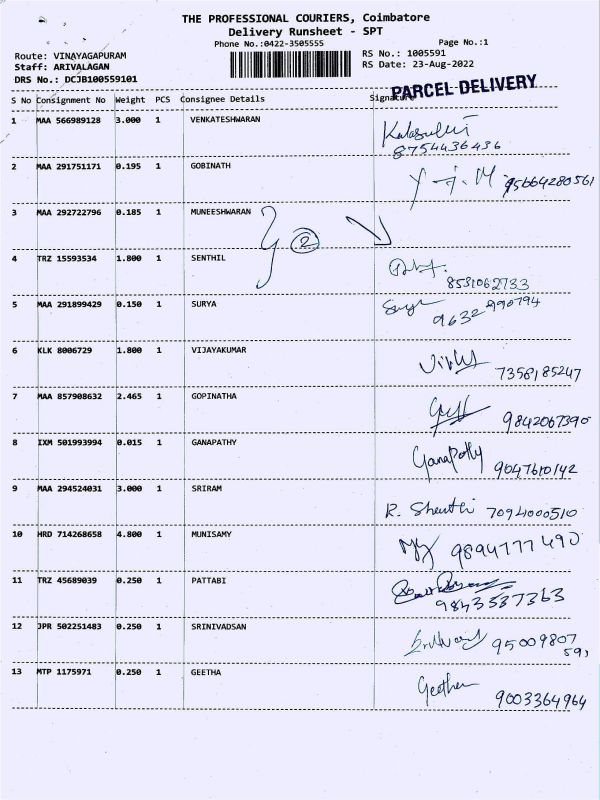 THE PROFESSIONAL COURIERS, Coimbatore
Delivery Runsheet - SPT
Phone No.:0422-3505555 Page No.:1
Route: VINAYAGAPURAM RS No.: 1005591
Staff: ARIVALAGAN RS Date: 23-Aug-2022
DRS No.: DCJB100559101
PARCEL DELIVERY
S No Consignment No Weight PCS Consignee Details Signature
1 MAA 566989128 3.000 1 VENKATESHWARAN
8754436436
2 MAA 291751171 0.195 1 GOBINATH Y-J.M 95664280561
3 MAA 292722796 0.185 1 MUNEESHWARAN
2
4 TRZ 15593534 1.800 1 SENTHIL
8531062733
5 MAA 291899429 0.150 1 SURYA Surya 9632990794
6 KLK 8006729 1.800 1 VIJAYAKUMAR
7358185247
7 MAA 857908632 2.465 1 GOPINATHA
9842067390
8 IXM 501993994 0.015 1 GANAPATHY Ganapathy
9047610142
9 MAA 294524031 3.000 1 SRIRAM
R. Shenthi 7094000510
10 HRD 714268658 4.800 1 MUNISAMY
9894777490
11 TRZ 45689039 0.250 1 PATTABI
9843537363
12 JPR 502251483 0.250 1 SRINIVADSAN
95009807
591
13 MTP 1175971 0.250 1 GEETHA Geetha
9003364964